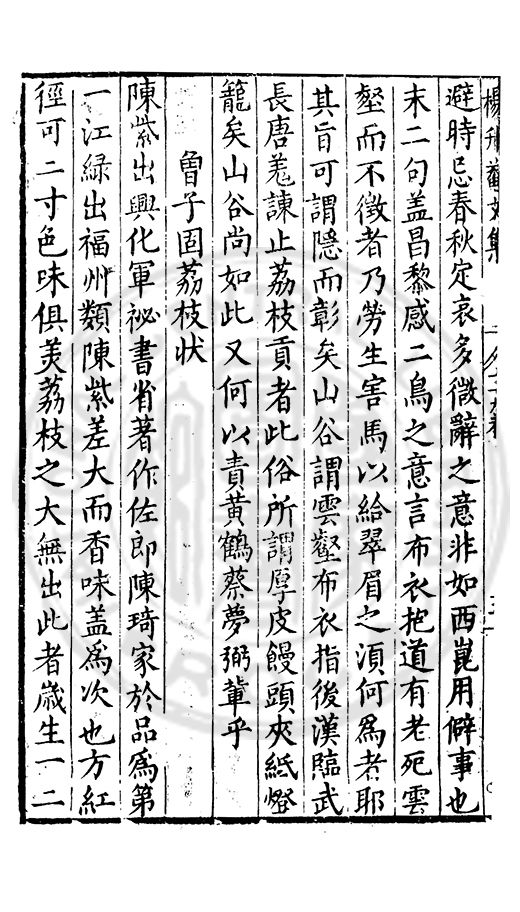 楊升菴文集
避時忌春秋定哀多微辭之意非如西崑用僻事也
末二句盖昌黎感二鳥之意言布衣抱道有老死雲
壑而不徴者乃勞生害馬以給翠眉之湏何爲者耶
其旨可謂隱而彰矣山谷謂雲壑布衣指後漢臨武
長唐羌諫止荔枝貢者此俗所謂厚皮饅頭夾紙燈
籠矣山谷尚如此又何以責黄鶴蔡夢弼輩乎
曾子固荔枝状
陳紫出興化軍祕書省著作佐郎陳琦家於品爲第
一江緑出福州類陳紫差大而香味盖爲次也方紅
徑可二寸色味俱美荔枝之大無出此者歳生一二